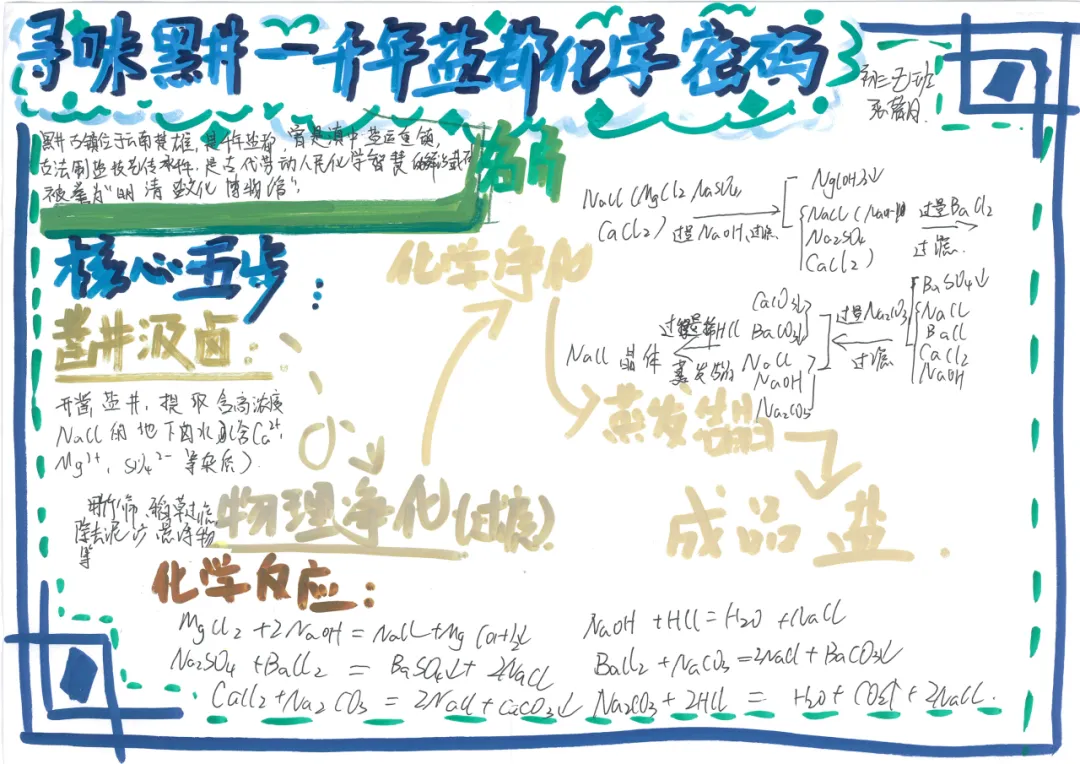 寻味黑井一千年盐都化学密码
初二元班
黑井古镇位于云南楚雄,是千年盐都,曾是滇中盐运重镇,
古法制盐技艺传承件,是古代劳动人民化学智慧的
被誉为“明清文化博物馆”。
名片
核心五步:
凿井汲卤:
开凿盐井,提取含高浓度
NaCl的地下卤水(含Ca²⁺,
Mg²⁺,SO₄²⁻等杂质)
用竹筛、稻草过滤,
除去泥沙悬浮物
等
物理净化(过滤)
化学净化
蒸发结晶
成品盐.
NaCl(MgCl2,Na2SO4,
CaCl2)过量NaOH、过滤
Mg(OH)2↓
NaCl(NaOH
Na2SO4
CaCl2)
过量BaCl2
过滤.
BaSO4↓
NaCl
BaCl
CaCl2
NaOH
过量Na2CO3
过滤
CaCO3↓
BaCO3↓
NaCl
NaOH
Na2CO3
HCl
蒸发
NaCl晶体
化学反应:
MgCl2+2NaOH=NaCl+Mg(OH)2↓
Na2SO4+BaCl2=BaSO4↓+2NaCl
CaCl2+Na2CO3=2NaCl+CaCO3↓
NaOH+HCl=H2O+NaCl
BaCl2+NaCO3=2NaCl+BaCO3↓
Na2CO3+2HCl=H2O+CO2↑+2NaCl.